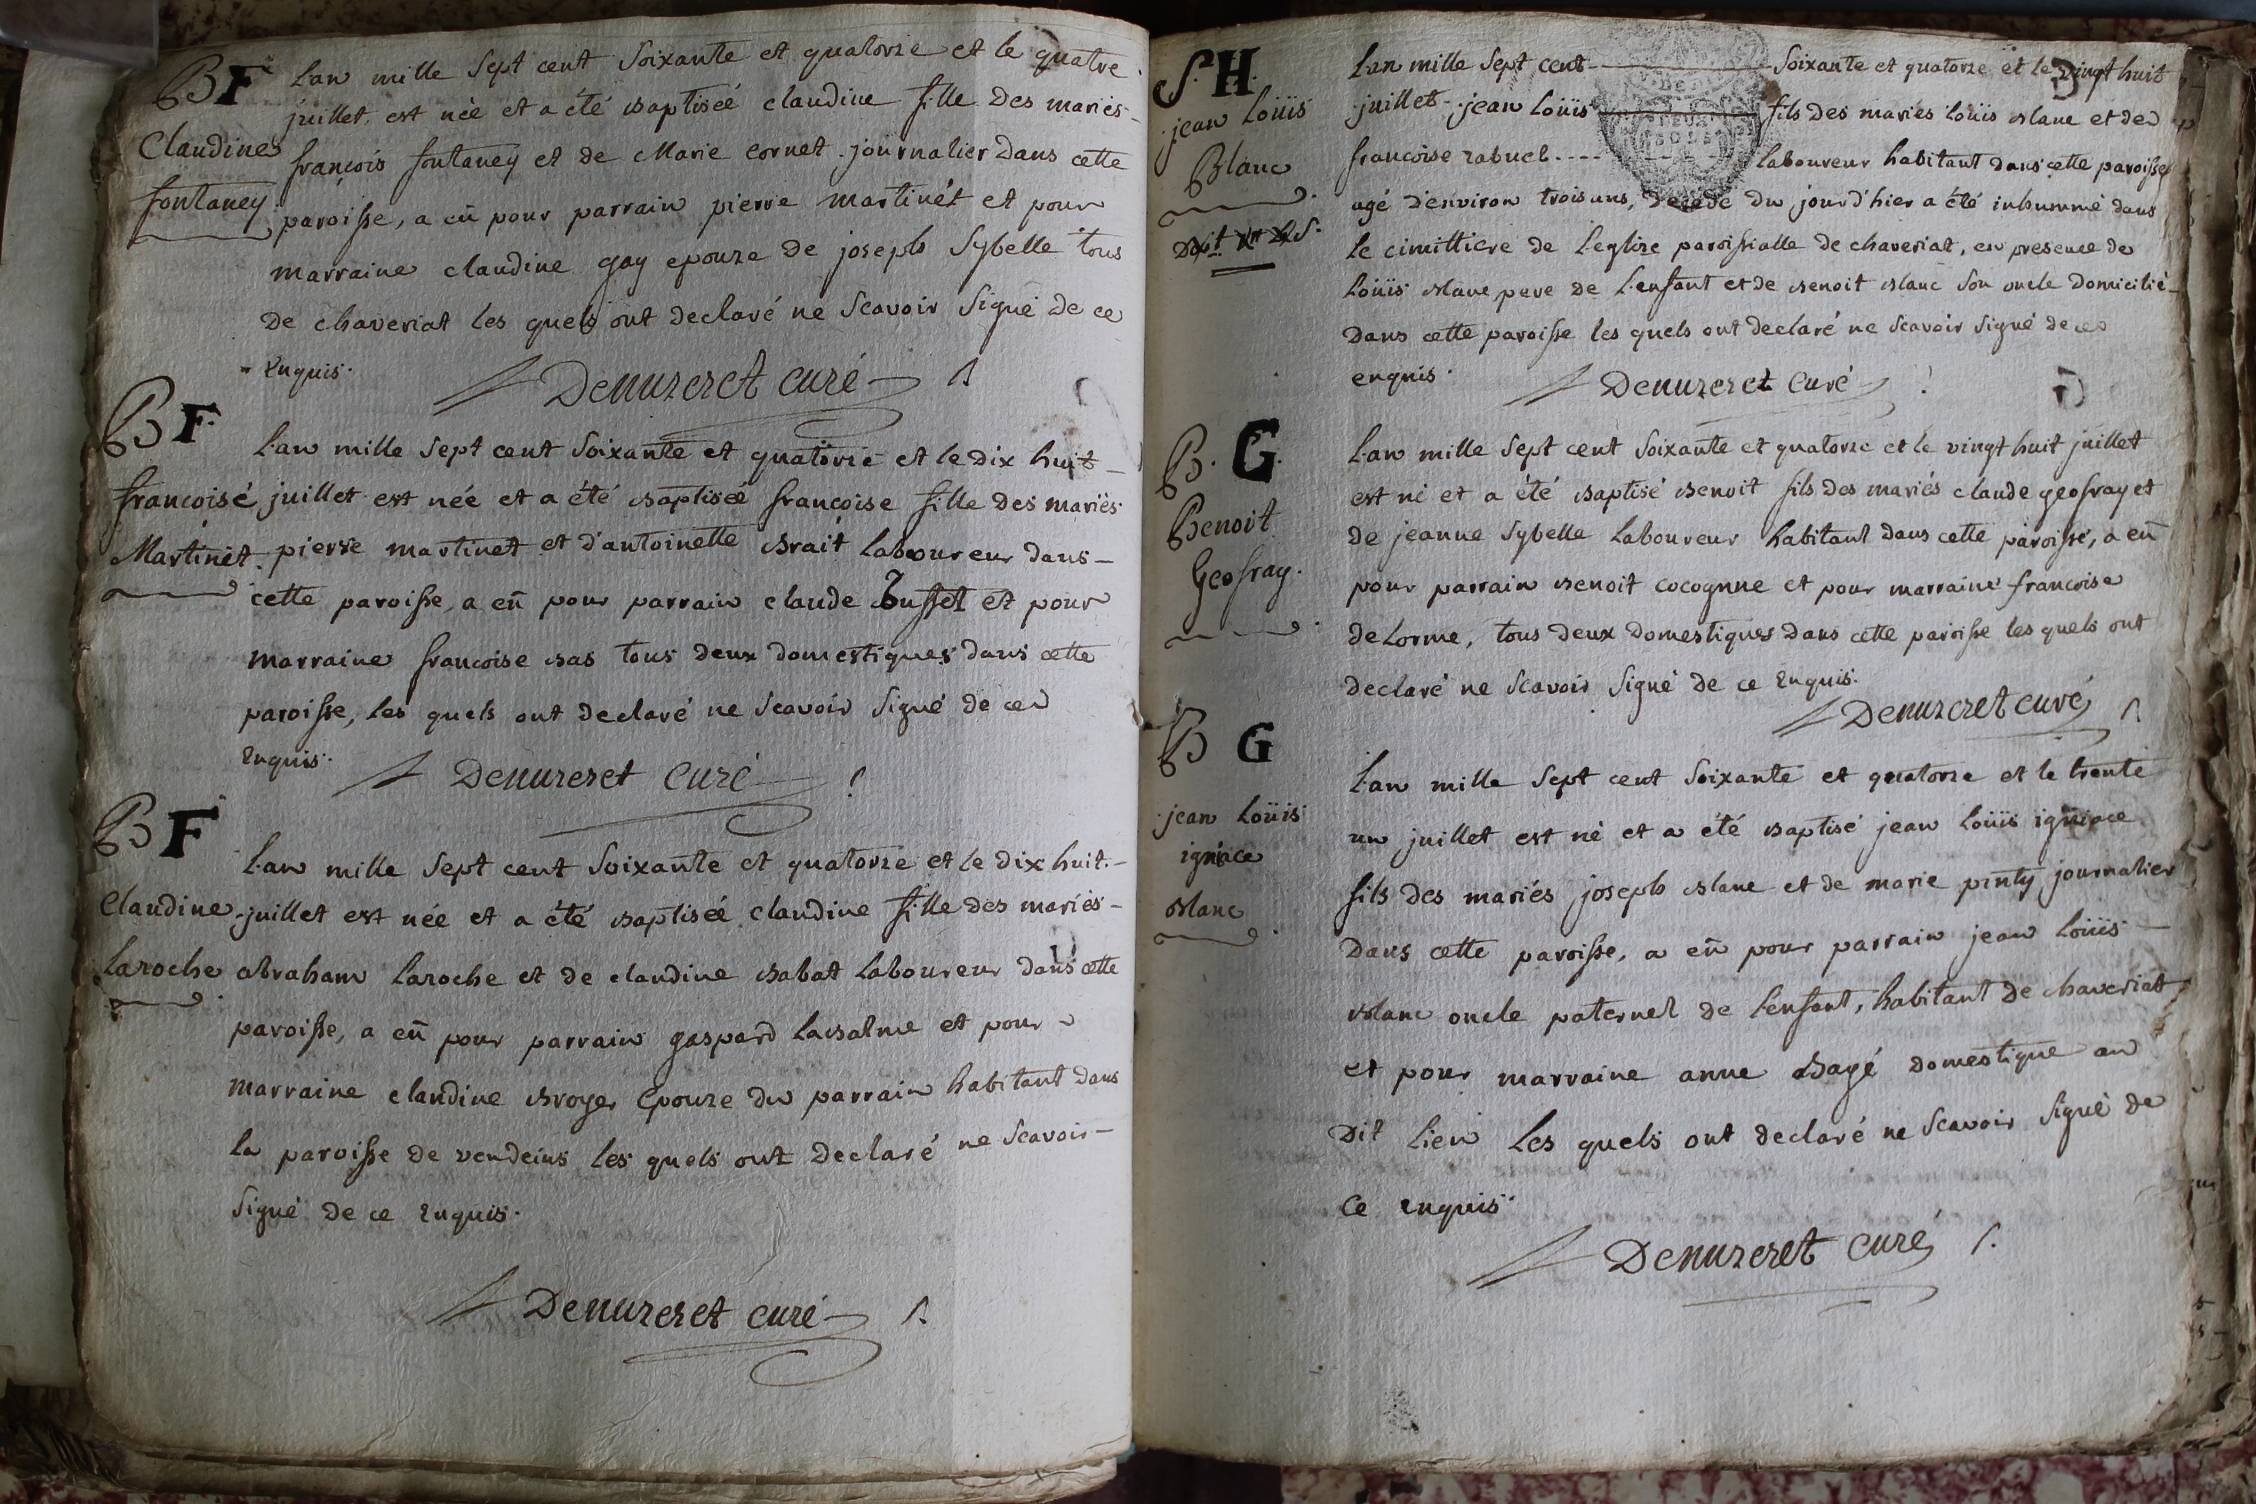 B F
Claudine
fontaney
L'an mille Sept cent Soixante et quatorze et le quatre
juillet, est née et a été baptiseé claudine fille Des mariés
françois fontaney et de Marie cornet journalier Dans cette
paroisse, a eü pour parrain pierre martinét et pour
marraine claudine gay epouze de joseph Sybelle tous
de chaveriat les quels ont declaré ne Scavoir Signé De ce
Enquis.
Denuzeret curé
B F
francoisé
Martinét
L'an mille Sept cent Soixante et quatorze et le dix huit
juillet est née et a été baptiseé françoise fille Des mariés
pierre martinet et d'antoinette brait Laboureur dans
cette paroisse, a eü pour parrain claude Buffet et pour
marraine francoise bas tous deux domestiques dans cette
paroisse, les quels ont declaré ne Scavoir Signé de ce
Enquis.
Denuzeret Curé
B F
Claudine
Laroche
L'an mille Sept cent Soixante et quatorze et le dix huit
juillet est née et a été baptiseé claudine fille des mariés
abraham Laroche et de claudine babat Laboureur dans cette
paroisse, a eü pour parrain gaspard Labalme et pour
marraine claudine broyer Epouze du parrain habitant dans
la paroisse de vendeins les quels ont Declaré ne Scavoir
Signé De ce Enquis.
Denuzeret curé
S. H.
jean Loüis
Blanc
L'an mille Sept cent Soixante et quatorze et le vingt huit
juillet jean Loüis fils des mariés Loüis blanc et de
francoise rabuel Laboureur habitant dans cette paroisse
agé d'environ trois ans, Decedé Du jour d'hier a été inhummé dans
le cimittiere de L'eglize paroissialle de chaveriat, en presence de
Loüis blanc pere de L'enfant et de benoit blanc Son oncle Domicilié
Dans cette paroisse les quels ont declaré ne Scavoir Signé de ce
enquis.
Denuzeret Curé
B. G.
Benoit
Geofray.
L'an mille Sept cent Soixante et quatorze et le vingt huit juillet
est né et a été baptisé benoit fils des mariés claude geofray et
de jeanne Sybelle Laboureur habitant dans cette paroisse, a eü
pour parrain benoit cocognne et pour marraine francoise
deLorme, tous deux domestiques dans cette paroisse les quels ont
declaré ne Scavoir Signé de ce Enquis.
Denuzeret curé
B G
jean Loüis
igniace
blanc
L'an mille Sept cent Soixante et quatorze et le trente
un juillet est né et a été baptisé jean Loüis igniace
fils des mariés joseph blanc et de marie pinty journalier
Dans cette paroisse, a eü pour parrain jean Loüis
blanc oncle paternel de L'enfant, habitant de chaveriat
et pour marraine anne bagé domestique au
Dit Lieu Les quels ont declaré ne Scavoir Signé de
Ce enquis
Denuzeret curé